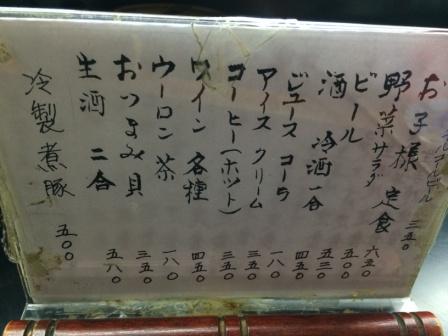 ビール 三五〇
お子様 定食 六五〇
野菜サラダ 五〇〇
ビール 五三〇
酒 冷酒一合 四五〇
ジュース コーラ 一八〇
アイスクリーム 三五〇
コーヒー(ホット) 三五〇
ワイン 各種 四五〇
ウーロン茶 一八〇
おつまみ貝 三五〇
生酒 二合 五八〇
冷製煮豚 五〇〇